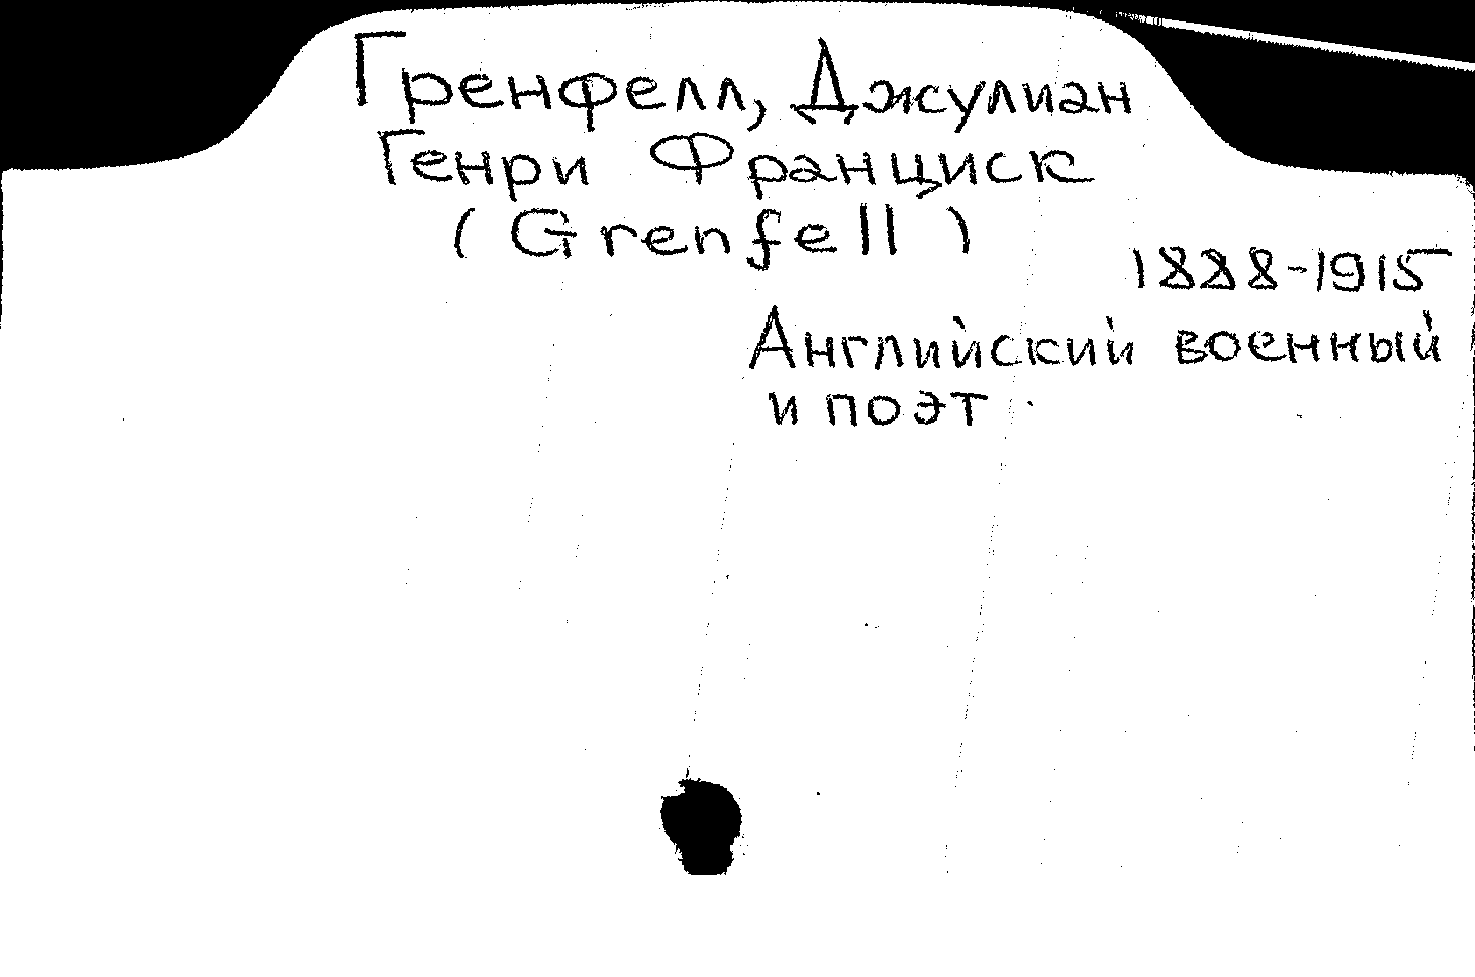 Гренфелл, Джулиан
Генри Франциск
(Grenfell)
1888-1915
Английский военный
и поэт.